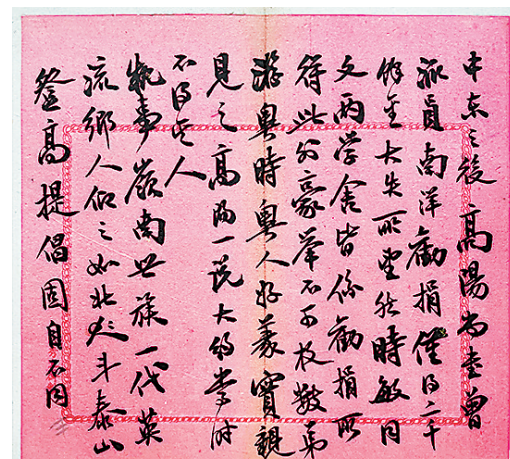 中東之後高陽尚書曾
派員南洋勸捐僅得二千
餘金大失所望然時敏同
文兩学舍皆係勸捐所
得此外豪举不可枚數弟
游粤時粤人好義實親
見之高陽一説大約時
不得其人
執事嶺南世族一代英
流鄉人仰之如北斗泰山
登高提倡固自不同